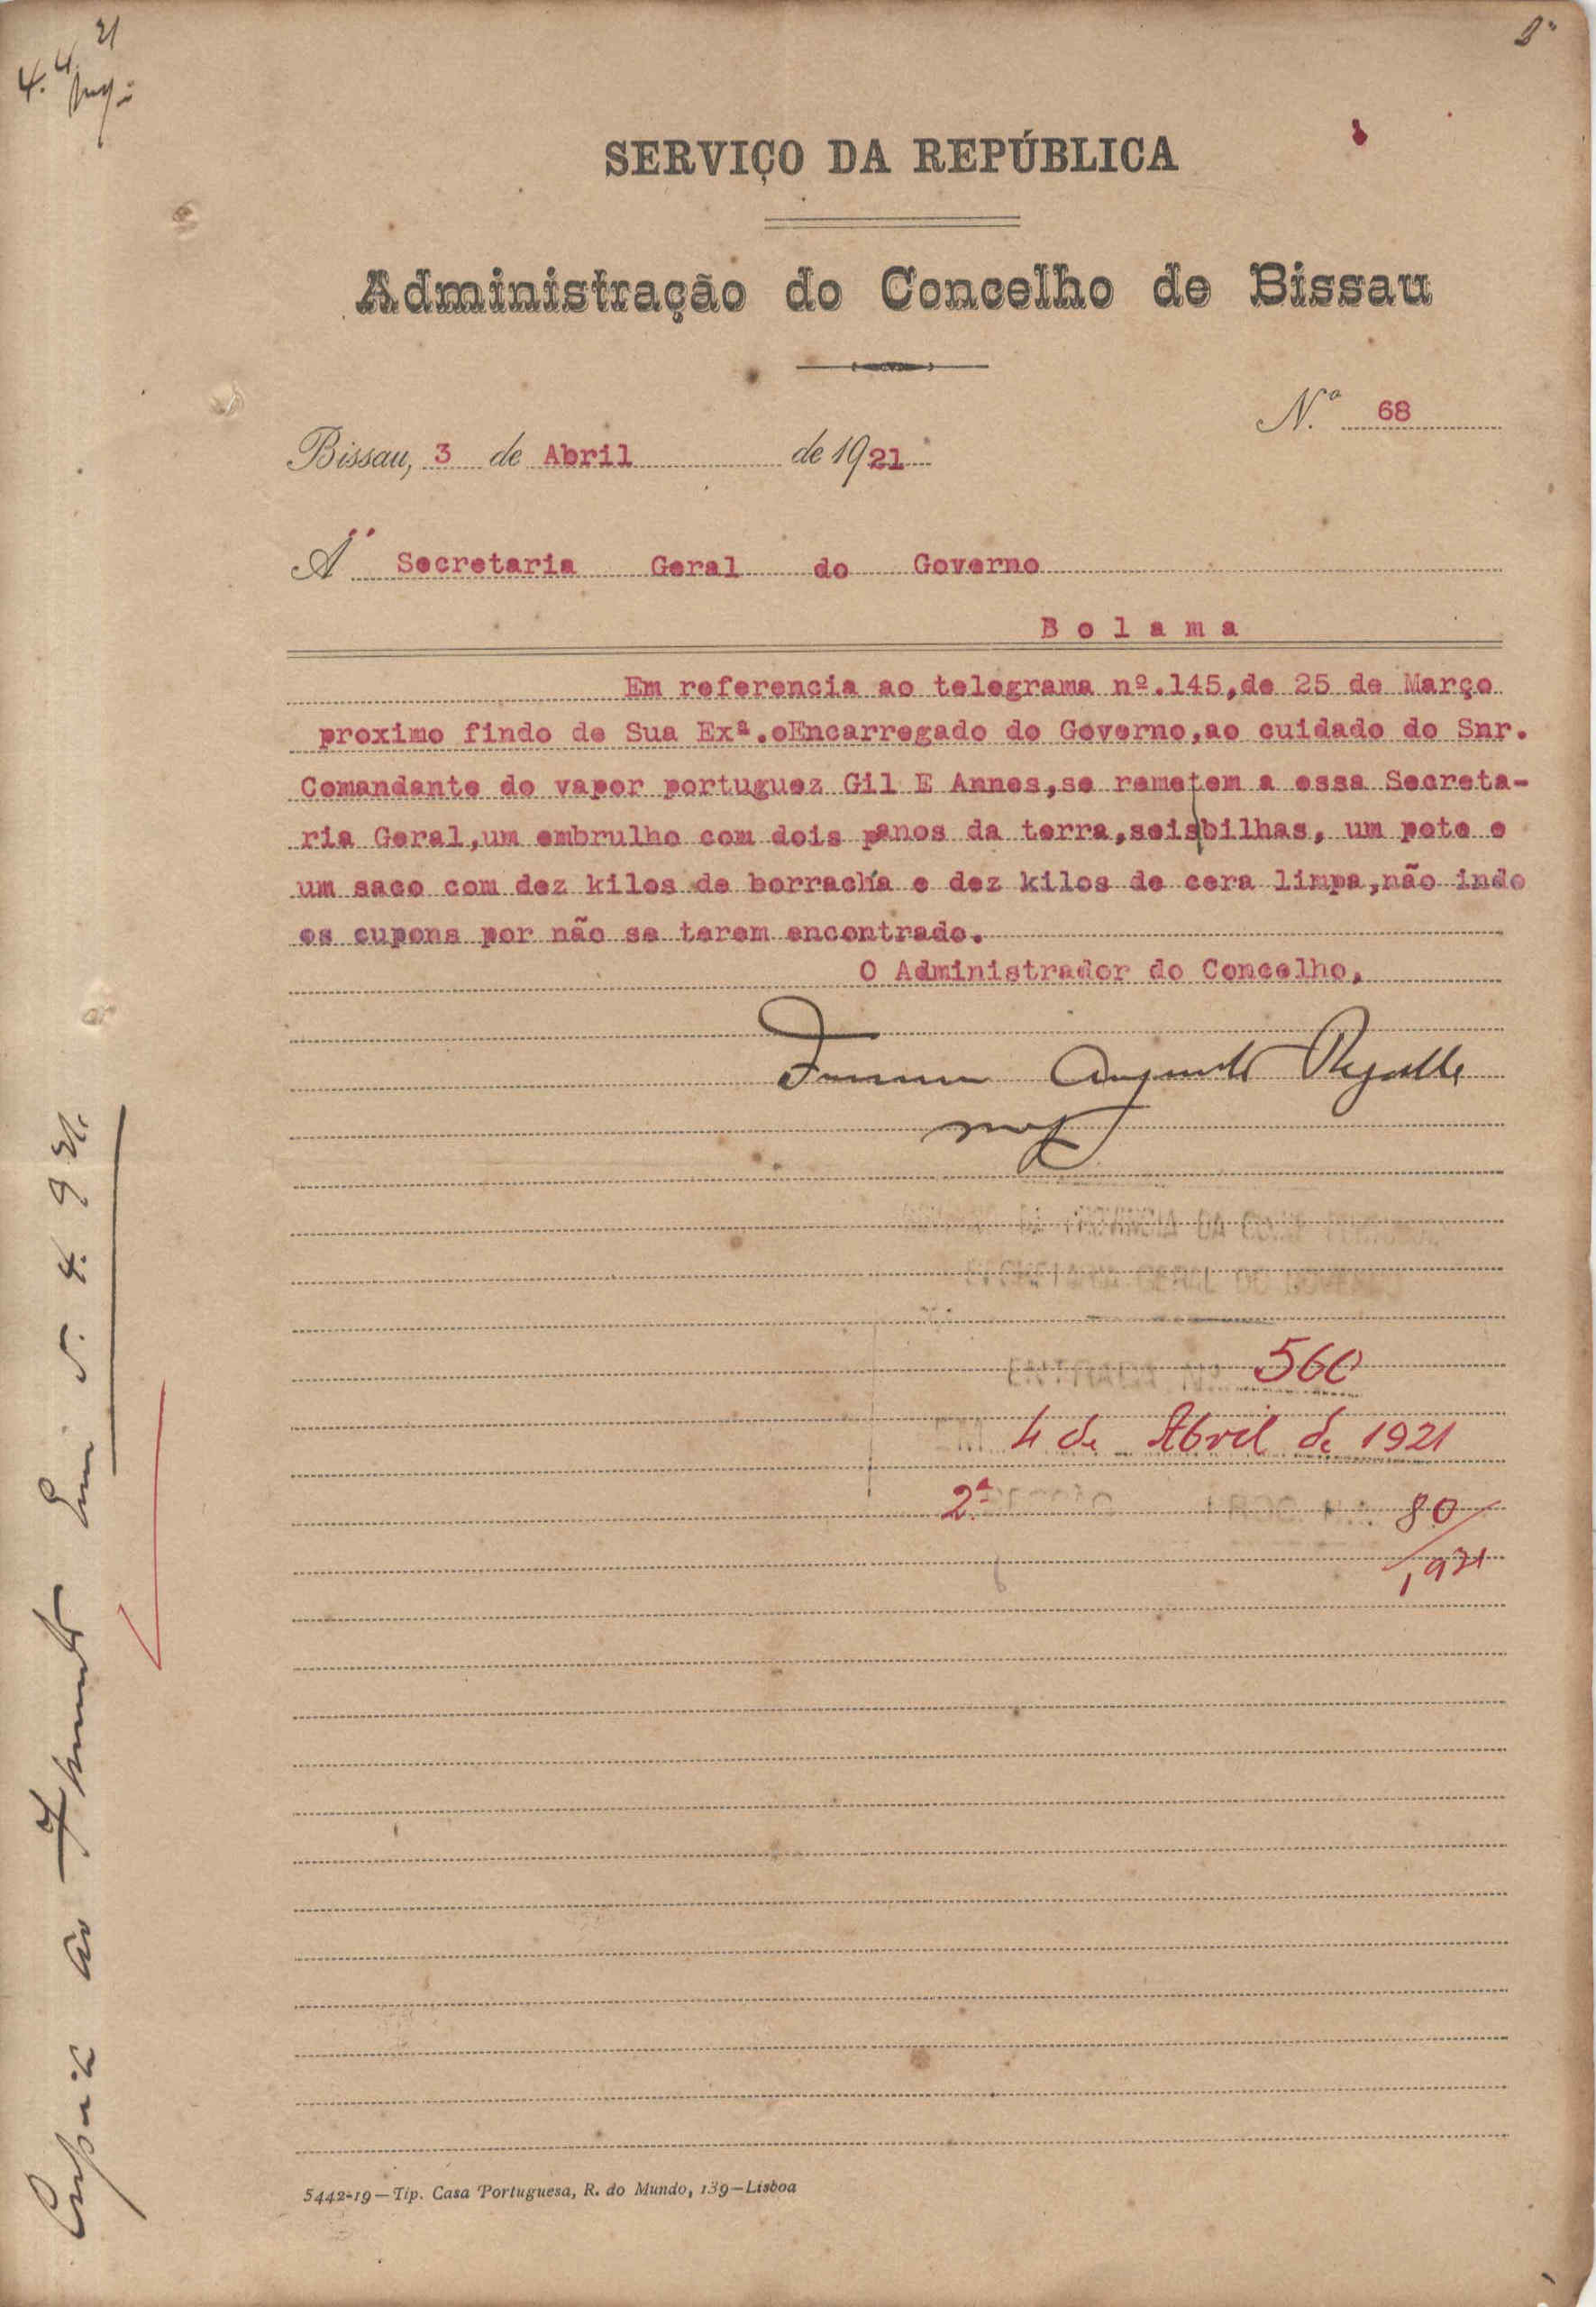 4. 4. 21
SERVIÇO DA REPÚBLICA
Administração do Concelho de Bissau
N.º 68
Bissau, 3 de Abril de 1921
Á Secretaria Geral do Governo
Bolama
Em referencia ao telegrama nº.145,de 25 de Março
proximo findo de Sua Exª.oEncarregado do Governo,ao cuidado do Snr.
Comandante do vapor portuguez Gil E Annes,se remetem a essa Secreta-
ria Geral,um embrulho com dois panos da terra,seisbilhas, um pote e
um saco com dez kilos de borracha e dez kilos de cera limpa,não indo
os cupons por não se terem encontrado.
O Administrador do Concelho,
Augusto
SECRETARIA GERAL DO GOVERNO
ENTRADA Nº 560
EM 4 de Abril de 1921
2ª 80
/921
5442-19—Tip. Casa Portuguesa, R. do Mundo, 139—Lisboa